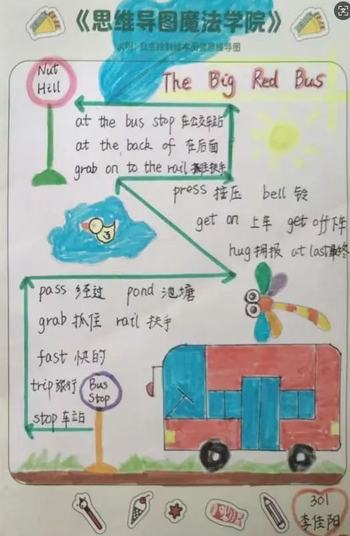 《思维导图魔法学院》
Nut
Hill
The Big Red Bus
at the bus stop 在公交车站
at the back of 在后面
grab on to the rail 抓住扶手
press 按压 bell 铃
get on 上车 get off 下车
hug 拥抱 at last 最终
pass 经过 pond 池塘
grab 抓住 rail 扶手
fast 快的
trip 旅行
Bus
Stop
stop 车站
301
李佳阳